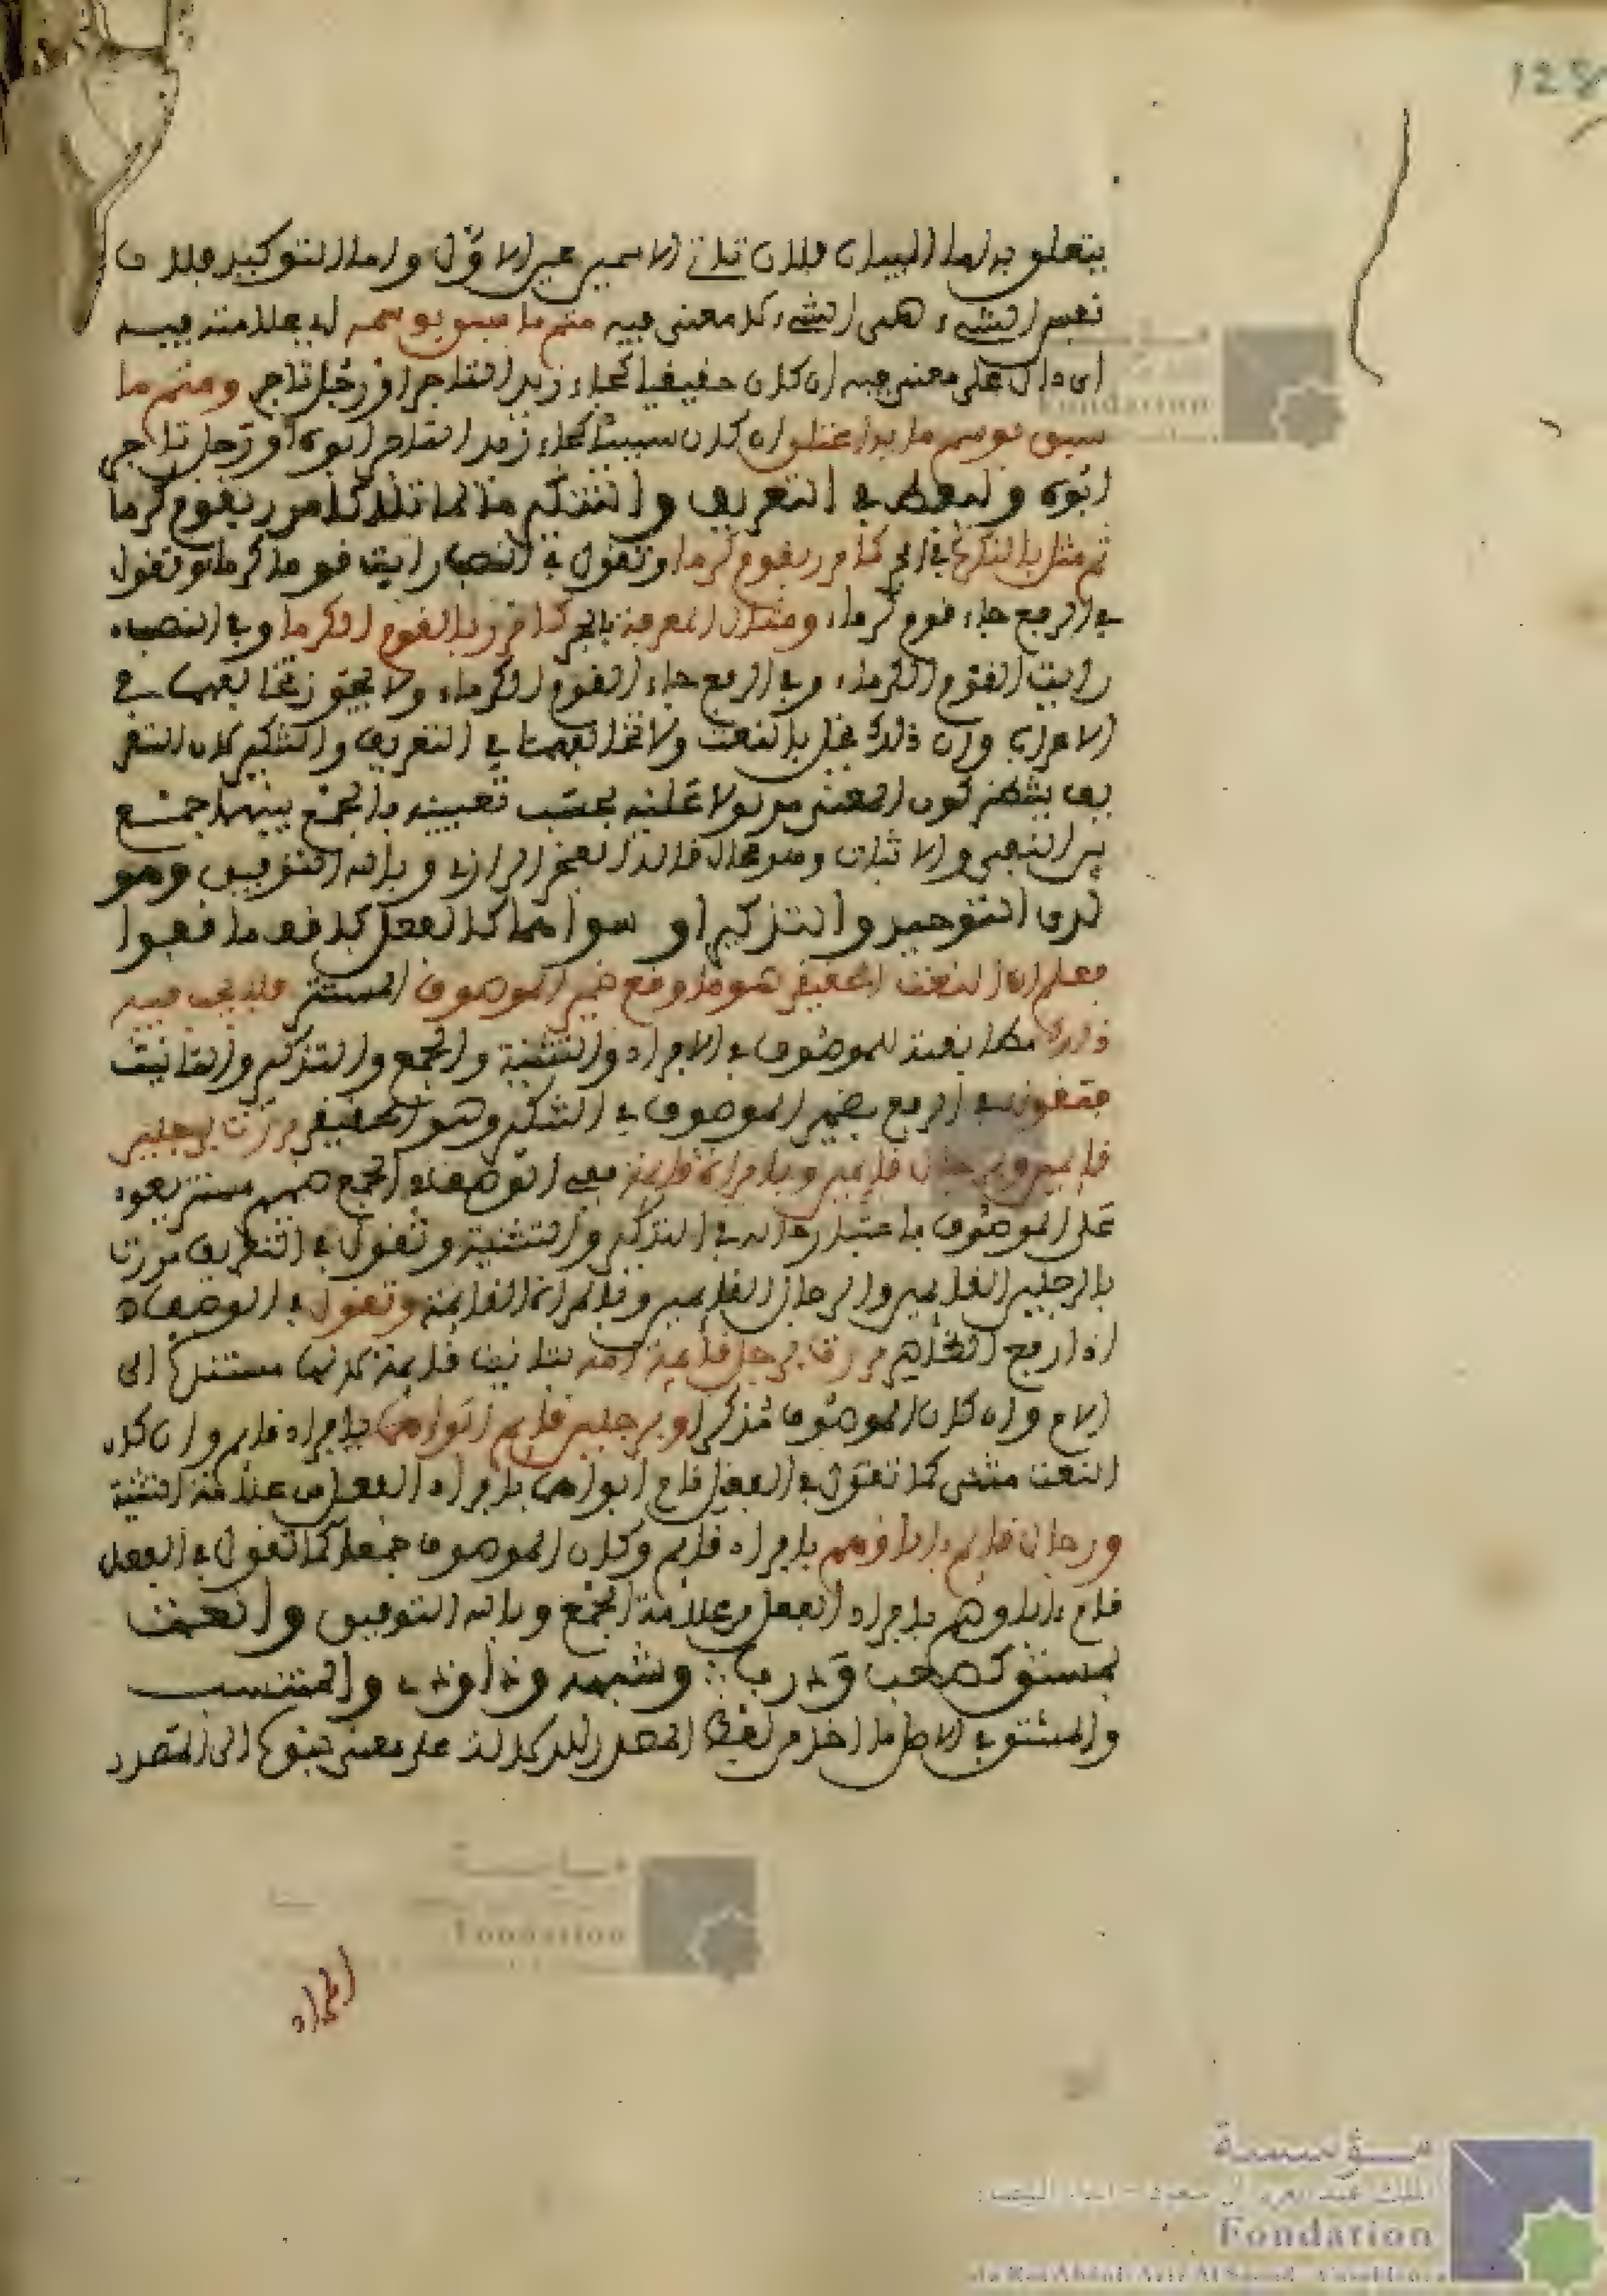 128
يتعلق به اما البيان فلان ثاني الاسمين عين الاول واما التوكيد فلان
نفس الشيء هي الشيء لا معنى فيه متم ما سبق بوسمه اي بعلامته فيه
اي دال على معنى فيه ان كان حقيقيا كجاء زيد التاجر او رجل تاجر ومتم ما
سبق بوسم ما به اعتلق ان كان سببيا كجاء زيد التاجر ابوه او رجل تاجر
ابوه وليعط في التعريف والتنكير ما لما تلا كامرر بقوم كرما
ثم مثل بالنكرة في الجر كامرر بقوم كرما وتقول في النصب رايت قوما كرماء وتقول
في الرفع جاء قوم كرماء ومثال المعرفة بالجر كامرر بالقوم الكرما وفي النصب
رايت القوم الكرماء وفي الرفع جاء القوم الكرماء ولا يجوز تخالفهما في
الاعراب وان ذلك يخل بالنعت ولا تخالفهما في التعريف والتنكير لان التعر
يف يقتضي كون المعنى مدلولا عليه بحسب تعيينه فالجمع بينهما جمع
بين النفي والاثبات وهو محال قاله الفخر الرازي وبالله التوفيق وهو
لدى التوحيد والتذكير او سواهما كالفعل فاقف ما قفوا
فعلم ان النعت الحقيقي هو ما رفع ضمير الموصوف المستتر فلا يجب فيه
ذلك مطابقته للموصوف في الافراد والتثنية والجمع والتذكير والتانيث
فتقول في الرفع بضمير الموصوف في التنكير وهو الحقيقي مررت برجلين
قايمين وبرجال قايمين وبامراة قايمة ففي الوصف في الجمع ضمير مستتر يعود
على الموصوف باعتبار حاله في التذكير والتثنية وتقول في التعريف مررت
بالرجلين القايمين والرجال القايمين وبالمراة القايمة وتقول في الوصف
اذا رفع الظاهر مررت برجل قايمة امه بتانيث قايمة لانها مستندة الى
الام وان كان الموصوف مذكرا وبرجلين قايم ابواهما بافراد قايم وان كان
النعت مثنى كما تقول في الفعل قام ابواهما بافراد الفعل من علامة التثنية
ورجال قايم اباؤهم بافراد قايم وكان الموصوف جمعا كما تقول في الفعل
قام اباؤهم بافراد الفعل من علامة الجمع وبالله التوفيق وانعت
بمشتق كصعب وذرب وشبهه وذا وذي والمنتسب
والمشتق في الاصل ما اخذ من لفظ المصدر للدلالة على معنى منسوب الى المصدر
المراد
مؤسسة
الملك عبد العزيز آل سعود - الدار البيضاء
Fondation
du Roi Abdul-Aziz Al Saoud - Casablanca